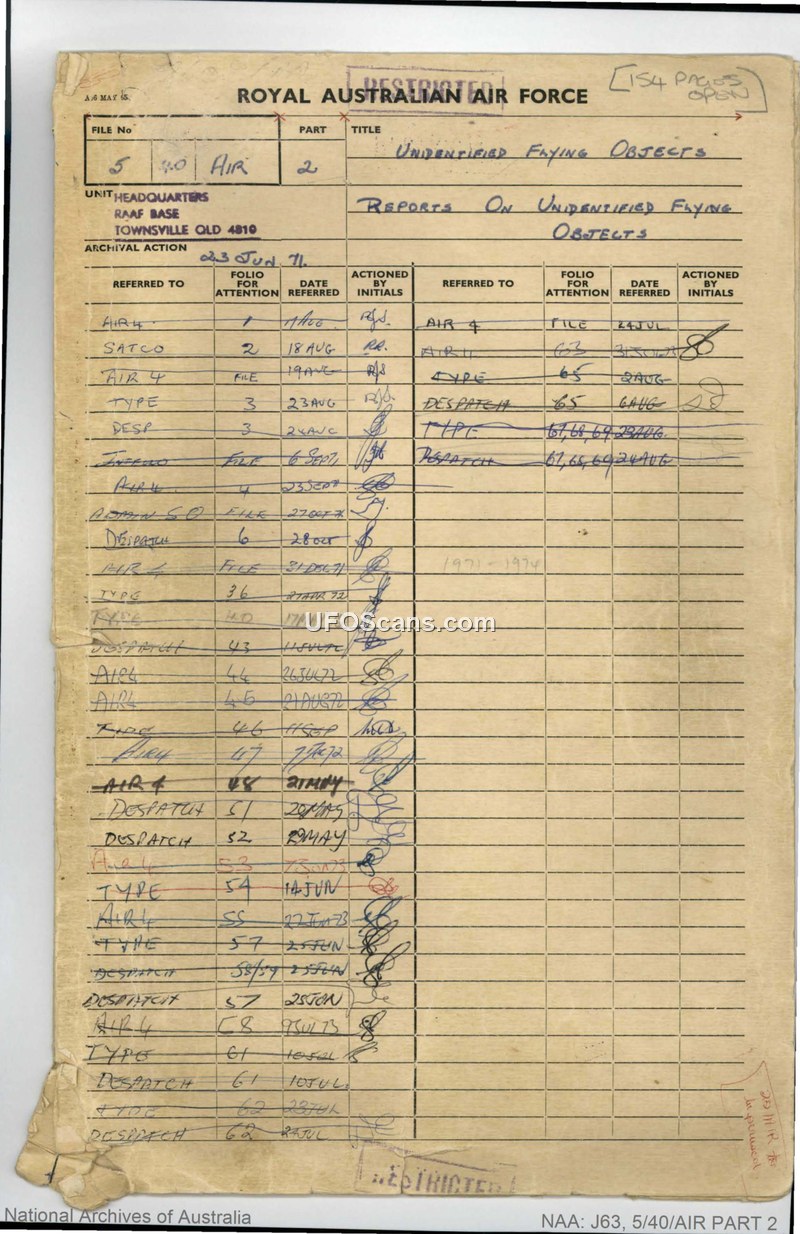 RESTRICTED
[154 PAGES OPEN]
ROYAL AUSTRALIAN AIR FORCE
FILE No PART TITLE
5 40 AIR 2 UNIDENTIFIED FLYING OBJECTS
UNIT HEADQUARTERS
RAAF BASE
TOWNSVILLE QLD 4810
REPORTS ON UNIDENTIFIED FLYING
OBJECTS
ARCHIVAL ACTION
23 JUN 71.
REFERRED TO FOLIO FOR ATTENTION DATE REFERRED ACTIONED BY INITIALS REFERRED TO FOLIO FOR ATTENTION DATE REFERRED ACTIONED BY INITIALS
AIR 4 1 AIR 4 FILE 24 JUL
SATCO 2 18 AUG 63
AIR 4 FILE 19 AUG TYPE 65 2 AUG
TYPE 3 23 AUG DESPATCH 65 6 AUG
DESP 3 24 AUG TYPE 67,68,69 23 AUG
FILE 6 SEPT DESPATCH 67,68,69 24 AUG
AIR 4 4 23 SEPT
ADMIN S O FILE 27 OCT
DESPATCH 6 28 OCT
AIR 4 FILE 31 DEC 71 1971 - 1974
TYPE 36 27 APR 72
TYPE
UFOScans.com
DESPATCH 43 11 JUL 72
AIR 4 44 26 JUL 72
AIR 4 45 21 AUG 72
46 11 SEP
AIR 4 47
AIR 4 48 21 MAY
DESPATCH 51
DESPATCH 52 29 MAY
AIR 4 53
TYPE 54 14 JUN
AIR 4 55 22 JUN 73
TYPE 57 25 JUN
DESPATCH 58/59 25 JUN
DESPATCH 57 25 JUN
AIR 4 9 JUL 73
TYPE 61 10 JUL
DESPATCH 61 10 JUL
TYPE 62 23 JUL
DESPATCH 62 24 JUL
RESTRICTED
National Archives of Australia
NAA: J63, 5/40/AIR PART 2